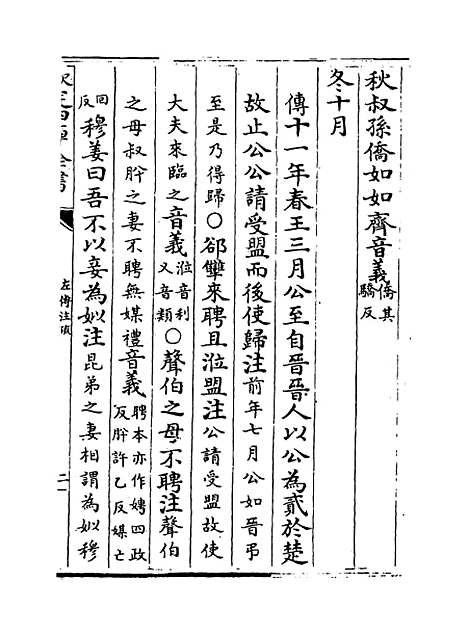 秋叔孫僑如如齊音義僑其驕反
冬十月
傳十一年春王三月公至自晉晉人以公為貳於楚
故止公公請受盟而後使歸注前年七月公如晉弔
至是乃得歸○郤犨來聘且涖盟注公請受盟故使
大夫來臨之音義涖音利又音類○聲伯之母不聘注聲伯
之母叔肸之妻不聘無媒禮音義聘本亦作娉四政反肸許乙反媒亡
回反穆姜曰吾不以妾為姒注昆弟之妻相謂為姒穆
欽定四庫全書
左傳注疏
二